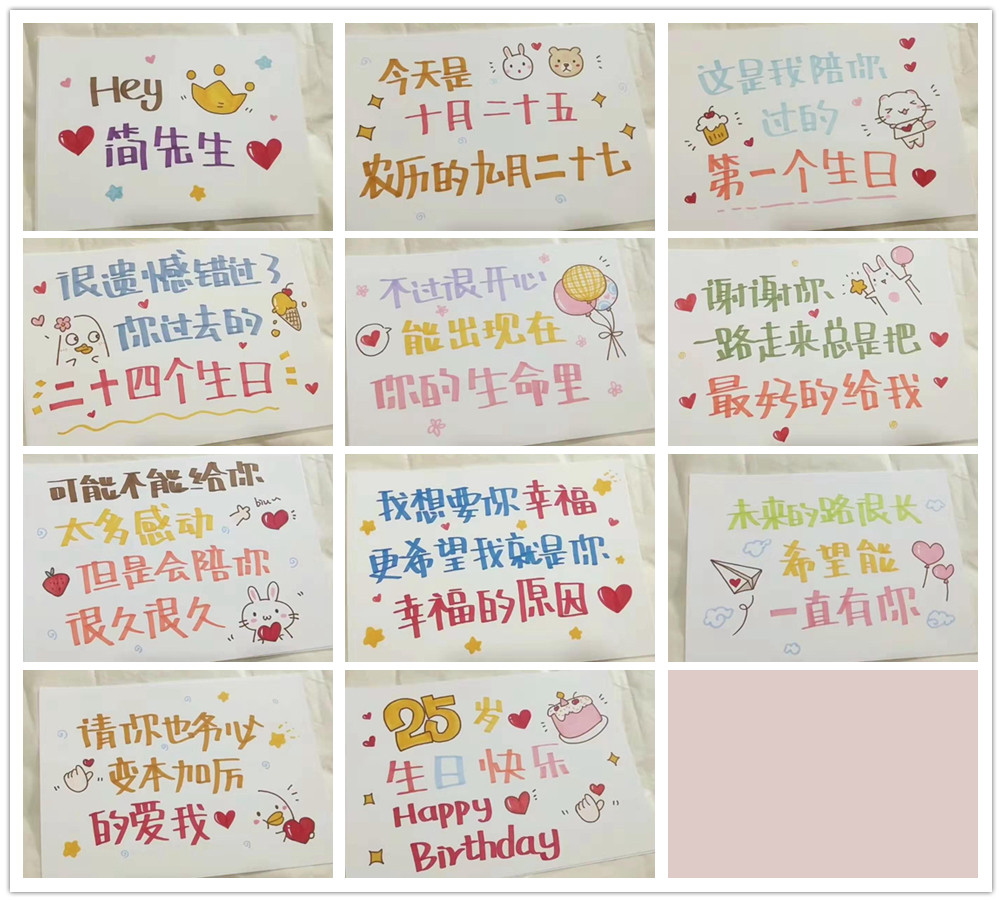 Hey
简先生
今天是
十月二十五
农历的九月二十七
这是我陪你
过的
第一个生日
很遗憾错过了
你过去的
二十四个生日
不过很开心
能出现在
你的生命里
谢谢你
一路走来总是把
最好的给我
可能不能给你
太多感动
biu~
但是会陪你
很久很久
我想要你幸福
更希望我就是你
幸福的原因
未来的路很长
希望能
一直有你
请你也务必
变本加厉
的爱我
25岁
生日快乐
Happy
Birthday